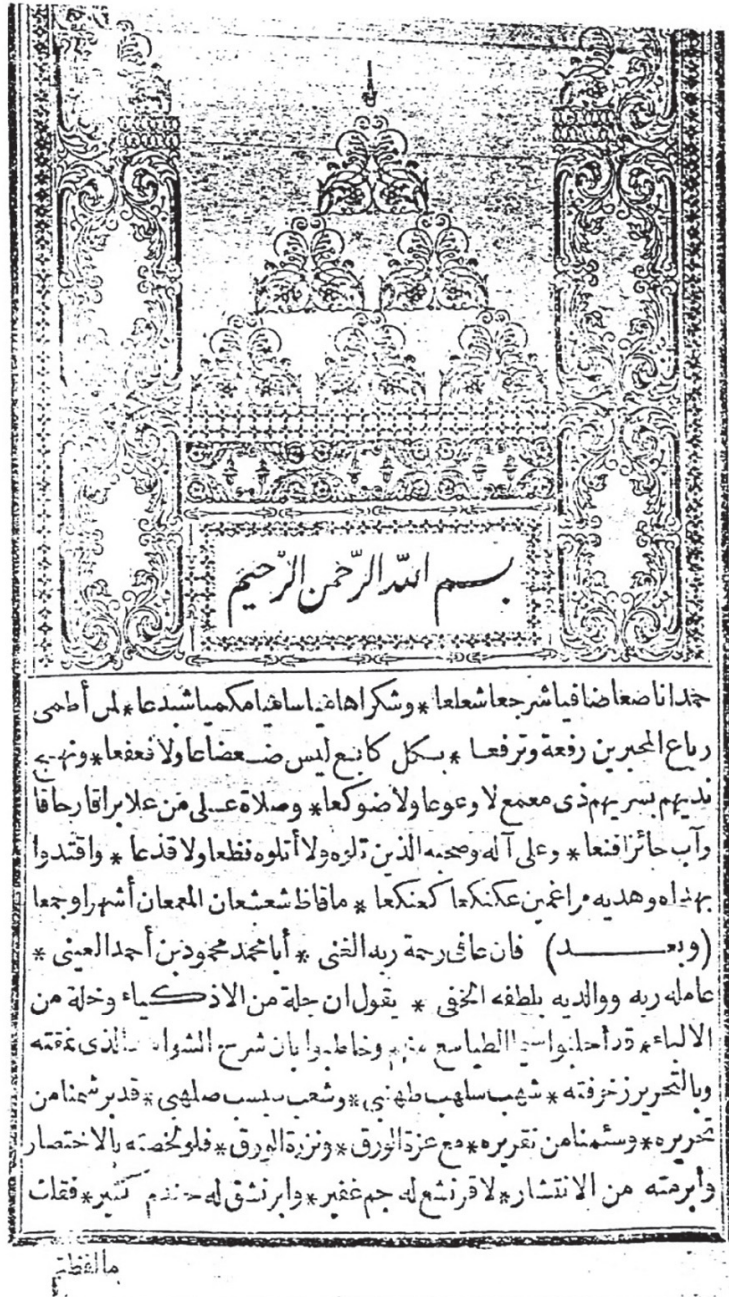 بسم الله الرحمن الرحيم
حمدا ناصعا ضافيا شرجعا شعلعا * وشكرا هاميا سافيا مكميا شبدعا * لمن أطمى
رباع المحبرين رفعة وترفعا * بكل كابع ليس ضعضاعا ولا نعفعا * ونهج
نديهم بسريهم ذى معمع لا وعوعا ولا ضوكعا * وصلاة على من علا براقا رحاقا
وآب حائزا فنعا * وعلى آله وصحبه الذين تلوه ولا أتلوه فظعا ولا قذعا * واقتدوا
بهداه وهديه مراغمين عكنكعا كعنكعا * ماقاظ شعشعان المعمعان أشهرا وجمعا
(وبعد) فان عافى رحمة ربه الغنى * أبا محمد محمود بن أحمد العينى *
عامله ربه ووالديه بلطفه الخفى * يقول ان جلة من الاذكياء وخلة من
الالباء * قد أجلبوا الطياسع منهم وخاطبوا بان شرح الشواهد الذى نمقته
وبالتحرير زخرفته * شهب سلهب طهنبى * وشعب سبسب صلهبى * قد برشمنا من
تحريره * وسئمنا من تقريره * مع عزة الورق * ونزرة الورق * فلو لخصته بالاختصار
وأبرمته من الانتشار * لاقرنشع له جم غفير * وابرنشق له كثير * فقلت